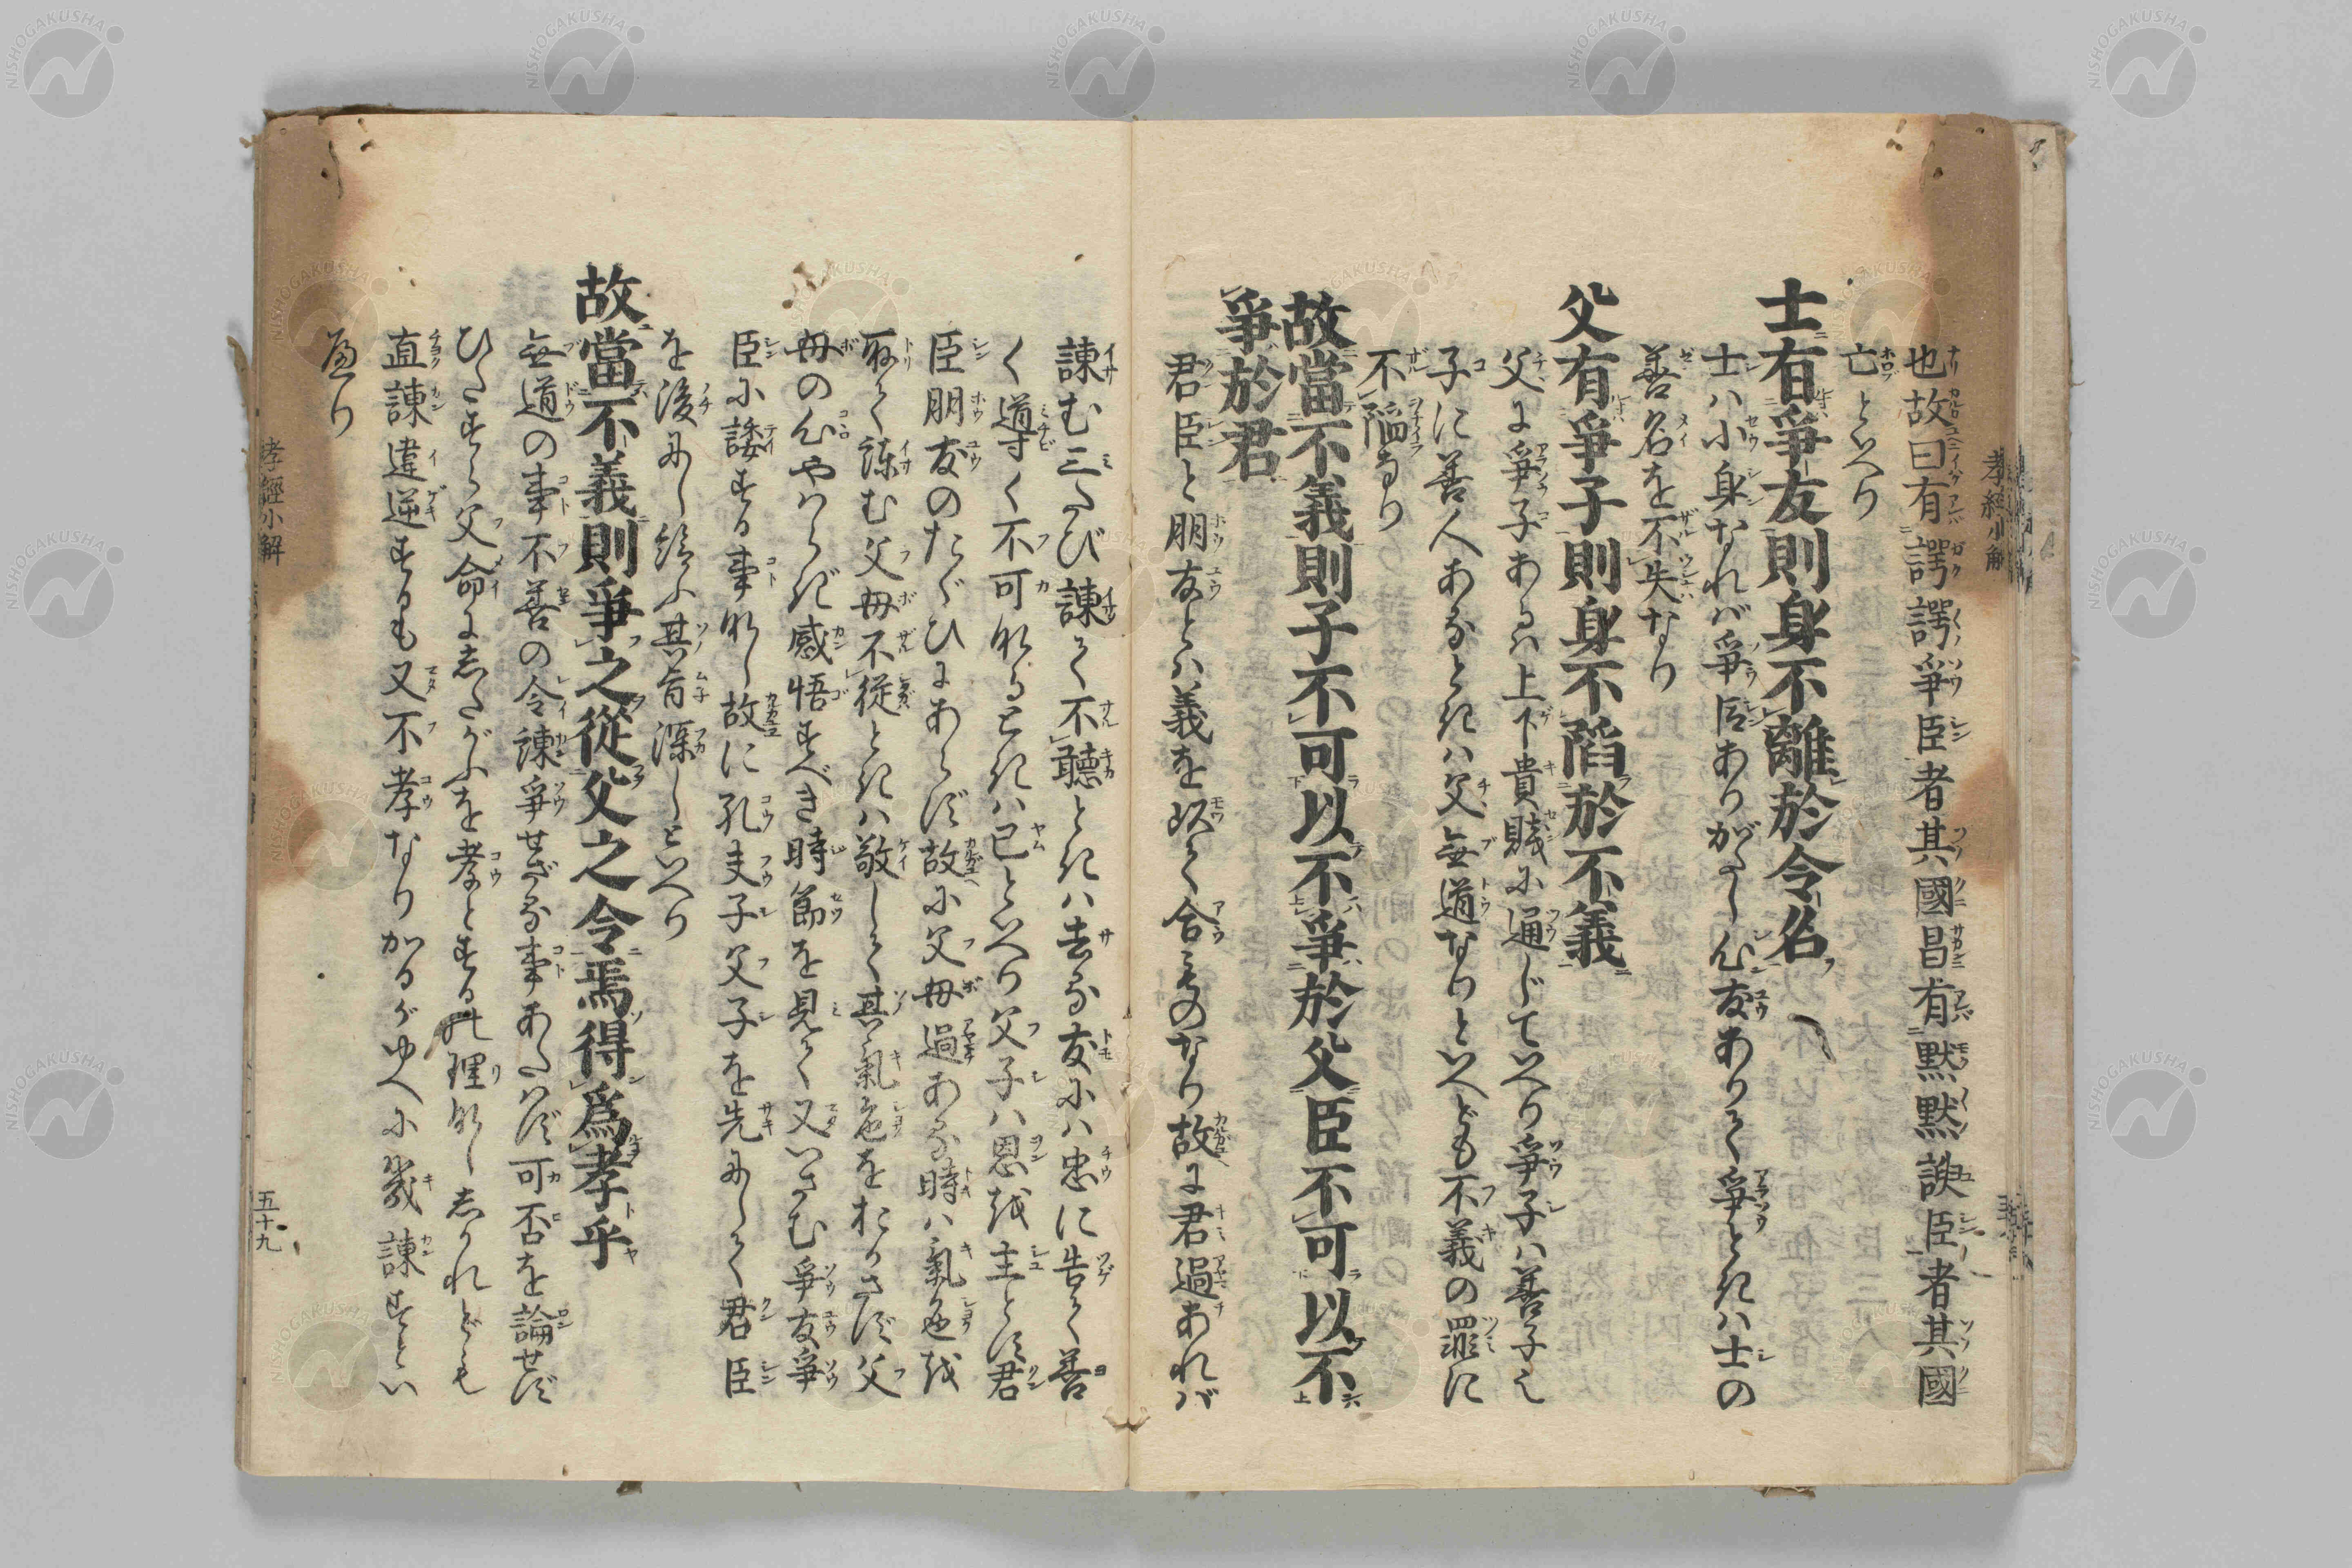 也故曰有諤諤爭臣者其國昌有默默諛臣者其國
亡といへり
士有爭友則身不離於令名
士ハ小身なれバ爭臣ありがたし心友ありて爭ときハ士の
善名を不失なり
父有爭子則身不陷於不義
父に爭子あるハ上下貴賤に通じていへり爭子ハ善子也
子に善人あるときハ父無道なりといへども不義の罪に
不陷なり
故當不義則子不可以不爭於父臣不可以不
爭於君
君臣と朋友とハ義を以て合ものなり故に君過あれバ
諫む三たび諫て不聽ときハ去る友にハ忠に告て善
く導く不可なるときハ已といへり父子ハ恩を主とす君
臣朋友のたぐひにあらず故に父母過ある時ハ氣色を
取て諫む父母不從ときハ敬して其氣色をおかさず父
母の心やハらぎ感悟すべき時節を見て又いさむ爭友爭
臣に諉する事なし故に孔夫子父子を先にして君臣
を後にし給ふ其旨深しといへり
故當不義則爭之從父之令焉得爲孝乎
無道の事不善の令諫爭せざる事あたハず可否を論せず
ひたすら父命にしたがふを孝とするの理なししかれども
直諫違逆するも又不孝なりかるがゆへに幾諫すとい
へり
孝經小解
孝經小解
五十九